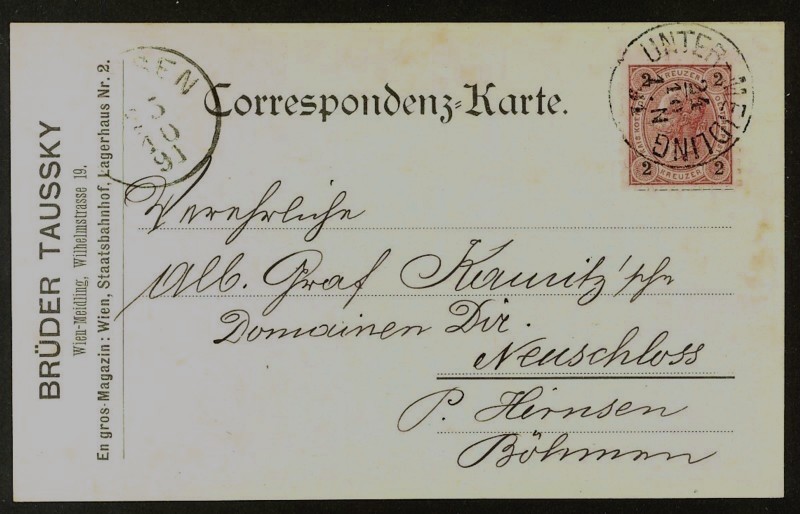 BRÜDER TAUSSKY
Wien-Meidling, Wilhelmstrasse 19.
En gros-Magazin: Wien, Staatsbahnhof, Lagerhaus Nr. 2.
Correspondenz-Karte.
UNTER MEIDLING
24
1 N
2 KREUZER 2
2 KREUZER 2
SEN
91
Verehrliche
Alb. Graf Kaunitz'sche
Domainen Dir.
Neuschloss
P. Hirnsen
Böhmen